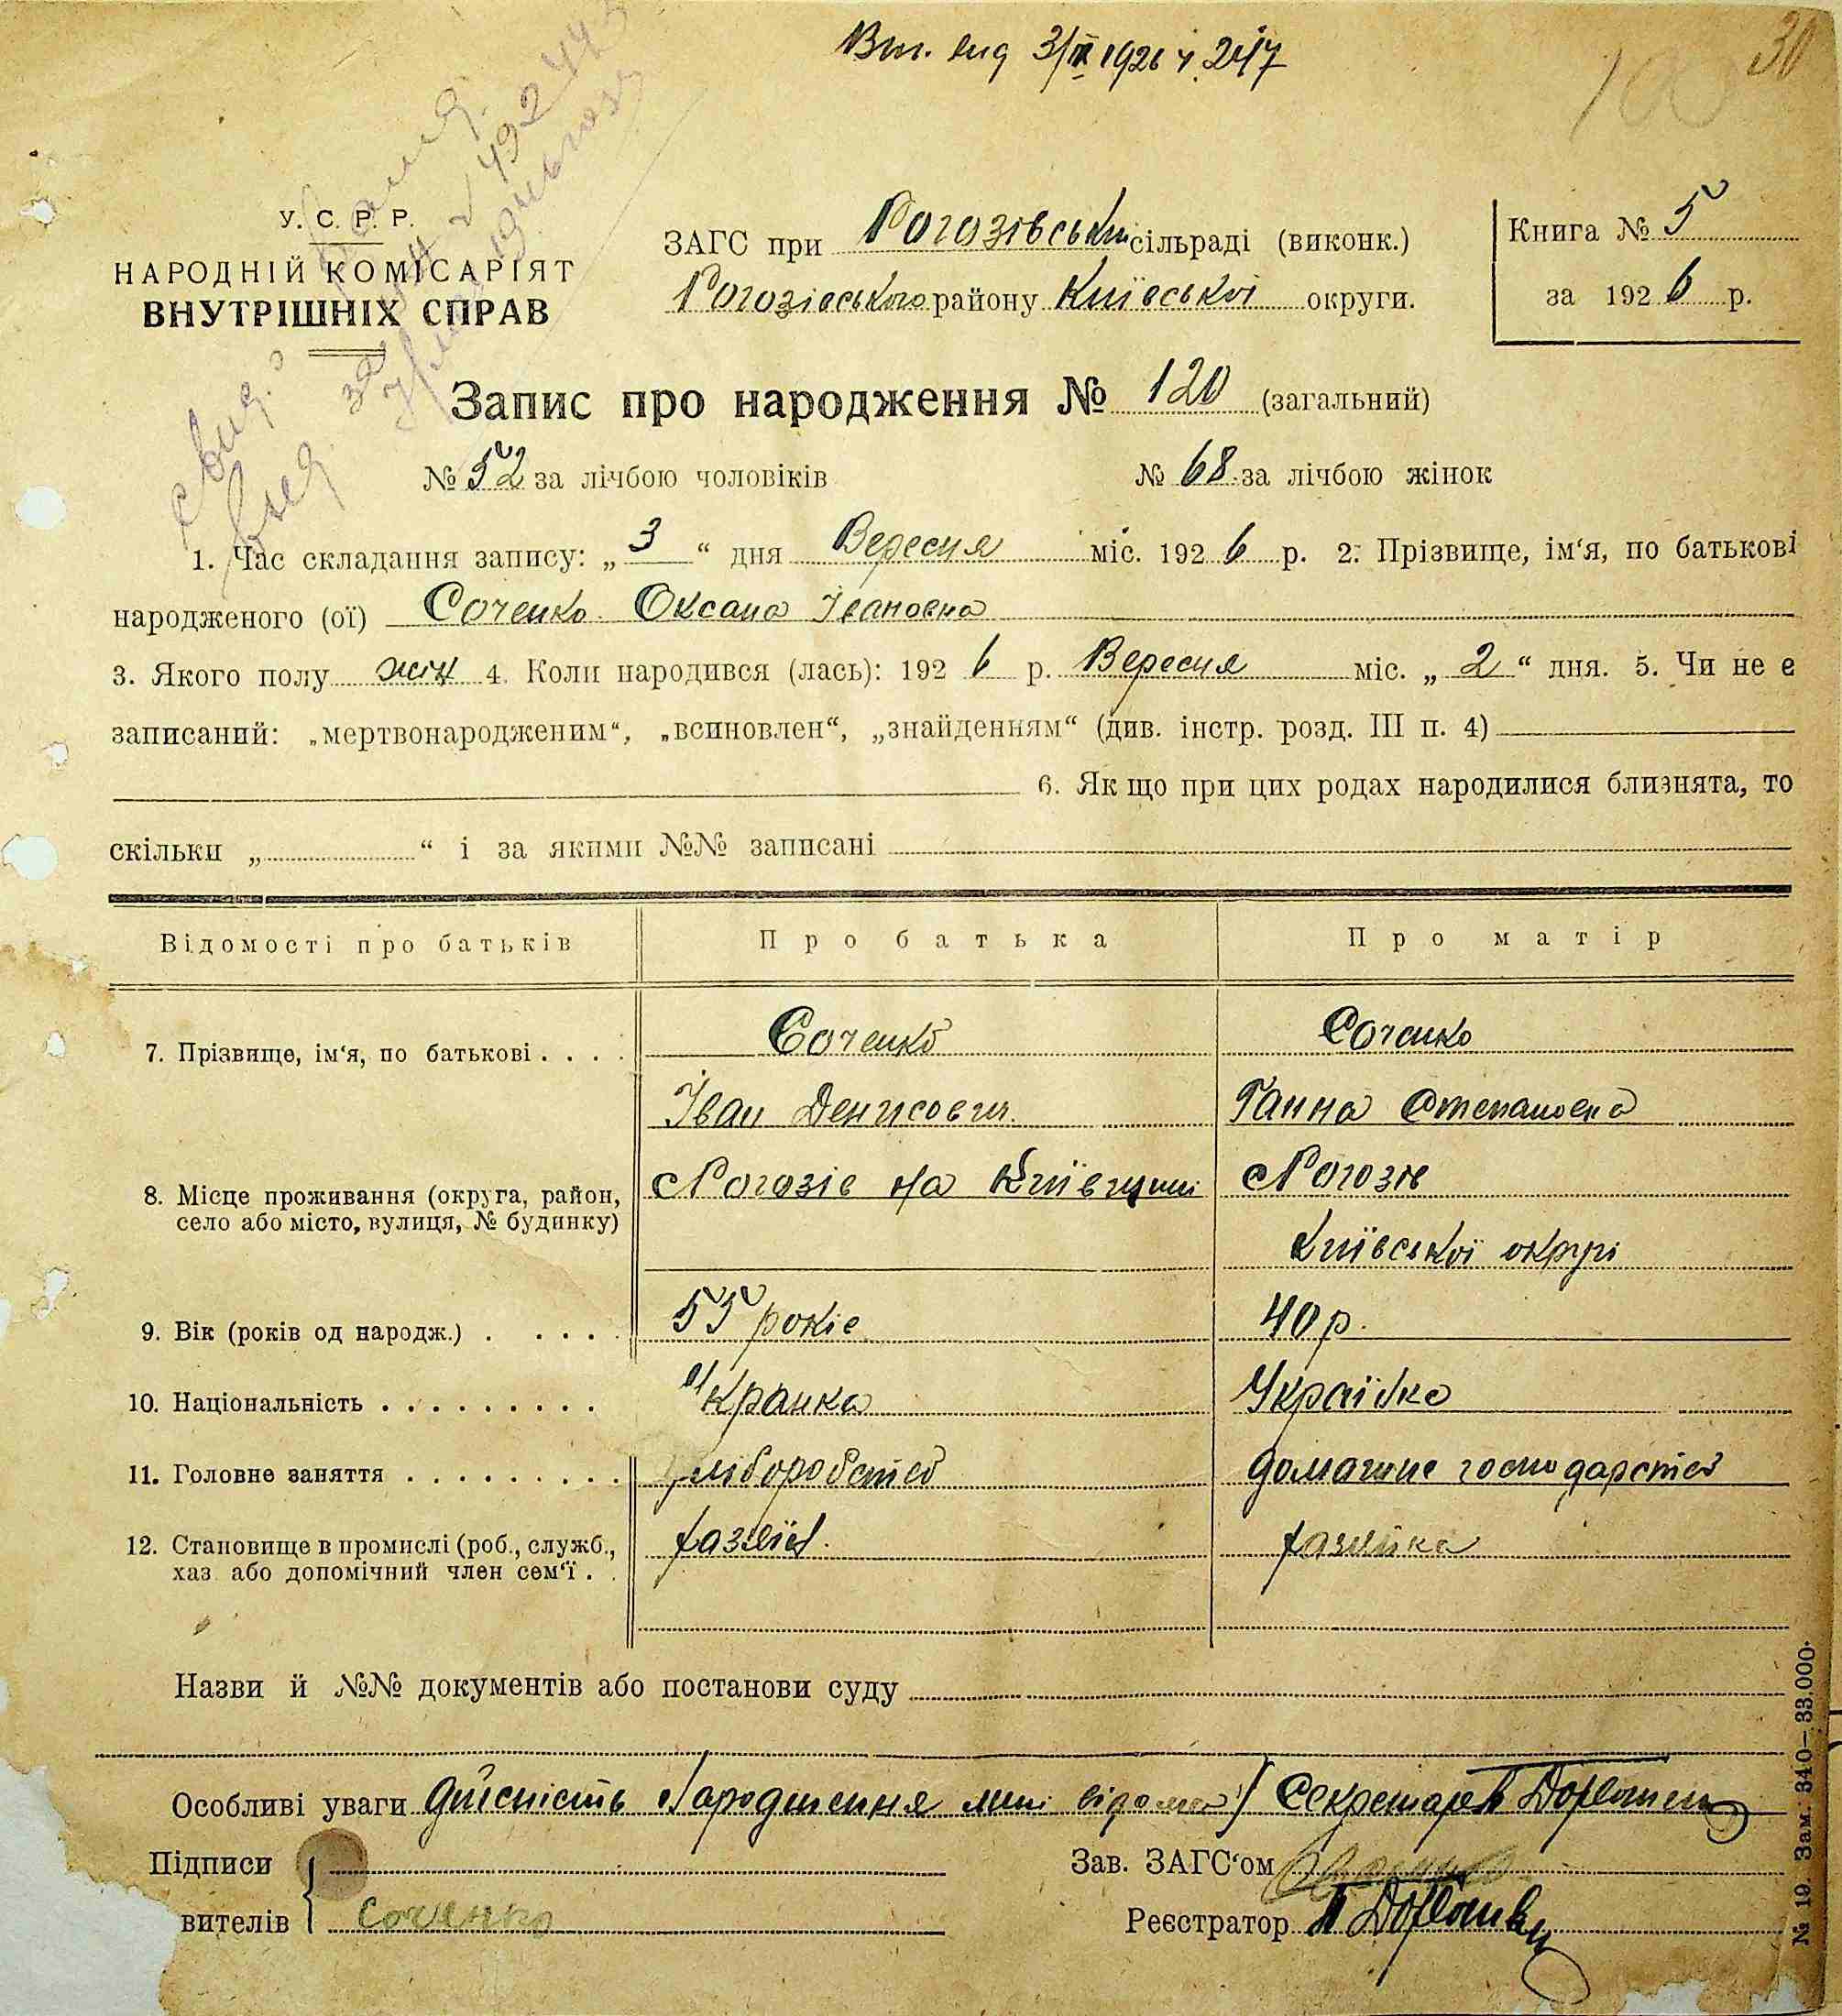 Вип. вид 3/IX 1926 ч. 247
30
100
У. С. Р. Р.
НАРОДНІЙ КОМІСАРІЯТ
ВНУТРІШНІХ СПРАВ
ЗАГС при Рогозівській сільраді (виконк.)
Рогозівського району Київської округи.
Книга № 5
за 1926 р.
Запис про народження № 120 (загальний)
№ 52 за лічбою чоловіків № 68 за лічбою жінок
1. Час складання запису: „3“ дня Вересня міс. 1926 р. 2. Прізвище, ім‘я, по батькові
народженого (ої) Соченко Оксана Івановна
3. Якого полу жін 4. Коли народився (лась): 1926 р. Вересня міс. „2“ дня. 5. Чи не є
записаний: „мертвонародженим“, „всиновлен“, „знайденням“ (див. інстр. розд. III п. 4)
6. Як що при цих родах народилися близнята, то
скільки „ “ і за якими №№ записані
Відомості про батьків Про батька Про матір
7. Прізвище, ім‘я, по батькові . . . . Соченко Соченко
Іван Денисович Ганна Степановна
8. Місце проживання (округа, район, Рогозів на Київщині Рогозів
село або місто, вулиця, № будинку) Київської округи
9. Вік (років од народж.) . . . . . 55 років 40 р.
10. Національність . . . . . . . . . Українка
11. Головне заняття . . . . . . . . . хліборобство домашнє господарство
12. Становище в промислі (роб., служб., хазяїн. хазяйка
хаз. або допомічний член сем‘ї . .
Назви й №№ документів або постанови суду
Особливі уваги Дійсність народження мині відома Секретарь
Підписи Зав. ЗАГС‘ом
вителів Соченко Реєстратор
№ 19. Зам. 340—33.000.